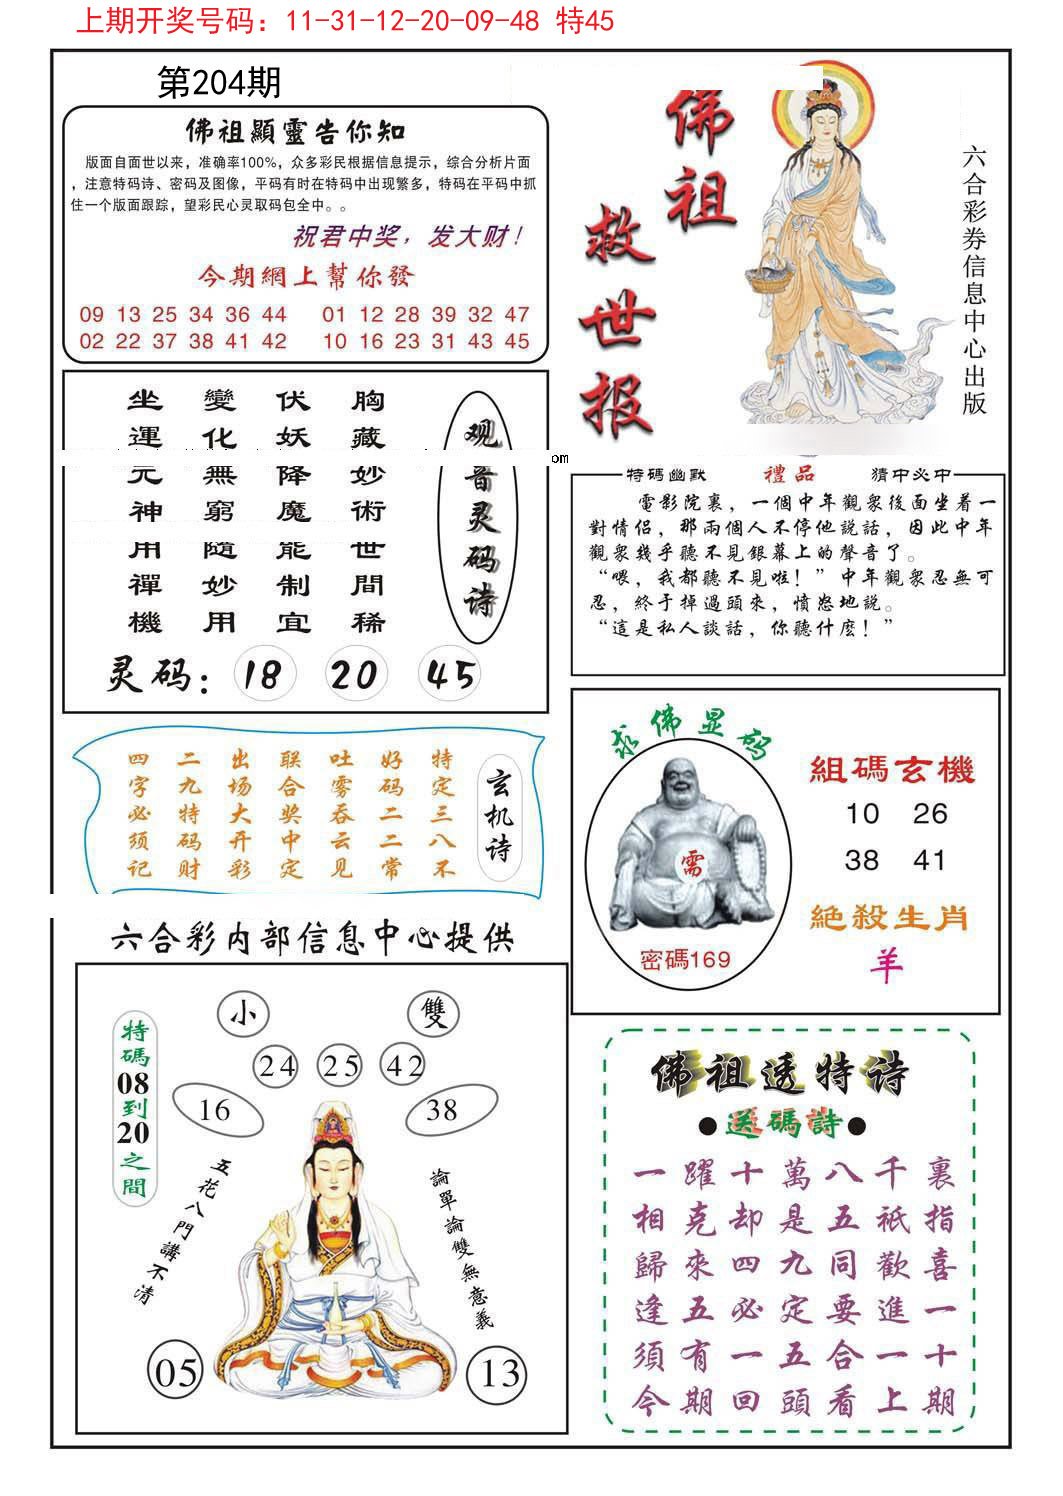 上期开奖号码：11-31-12-20-09-48 特45
第204期
佛祖顯靈告你知
版面自面世以来，准确率100%，众多彩民根据信息提示，综合分析片面
，注意特码诗、密码及图像，平码有时在特码中出现繁多，特码在平码中抓
住一个版面跟踪，望彩民心灵取码包全中。。
祝君中奖，发大财！
今期網上幫你發
09 13 25 34 36 44 01 12 28 39 32 47
02 22 37 38 41 42 10 16 23 31 43 45
佛祖
救世报
六合彩券信息中心出版
观音灵码诗
胸藏妙術世間稀
伏妖降魔能制宜
變化無窮隨妙用
坐運元神用禪機
com
灵码：18 20 45
特碼幽默 禮品 猜中必中
電影院裏，一個中年觀衆後面坐着一
對情侣，那兩個人不停他説話，因此中年
觀衆幾乎聽不見銀幕上的聲音了。
“喂，我都聽不見啦！”中年觀衆忍無可
忍，終于掉過頭來，憤怒地説。
“這是私人談話，你聽什麽！”
玄机诗
特定三八不
好码二二常
吐雾吞云见
联合奖中定
出场大开彩
二九特码财
四字必须记
求佛显码
需
密碼169
組碼玄機
10 26
38 41
絕殺生肖
羊
六合彩内部信息中心提供
小 雙
24 25 42
16 38
特碼08到20之間
五花八門講不清
論單論雙無意義
05 13
佛祖透特诗
●送碼詩●
一躍十萬八千裏
相克却是五祇指
歸來四九同歡喜
逢五必定要進一
須有一五合一十
今期回頭看上期